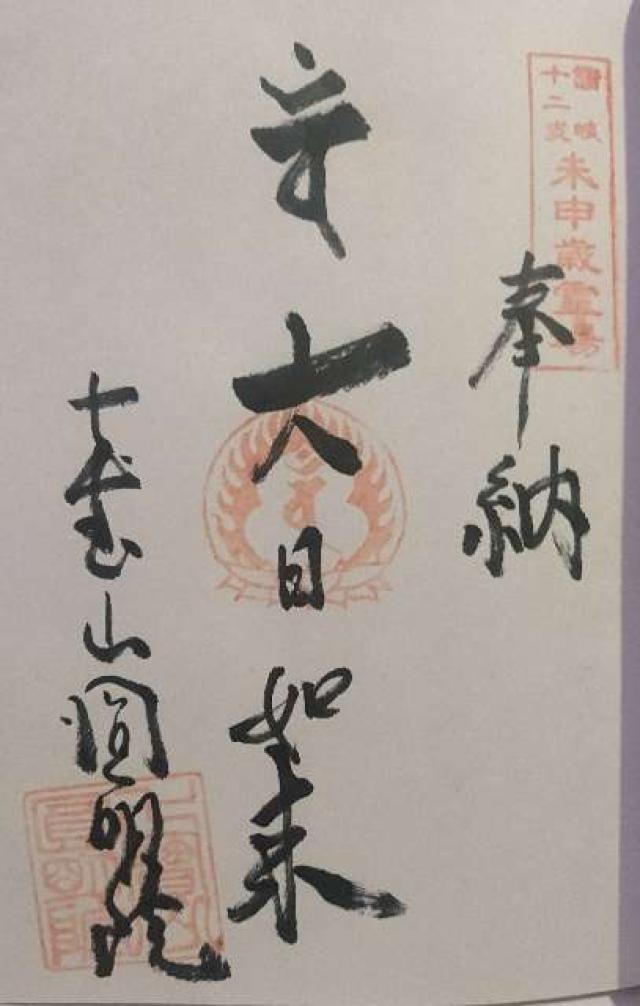 讃岐
十二支
未申歳霊場
奉納
大日如来
七宝山圓明院